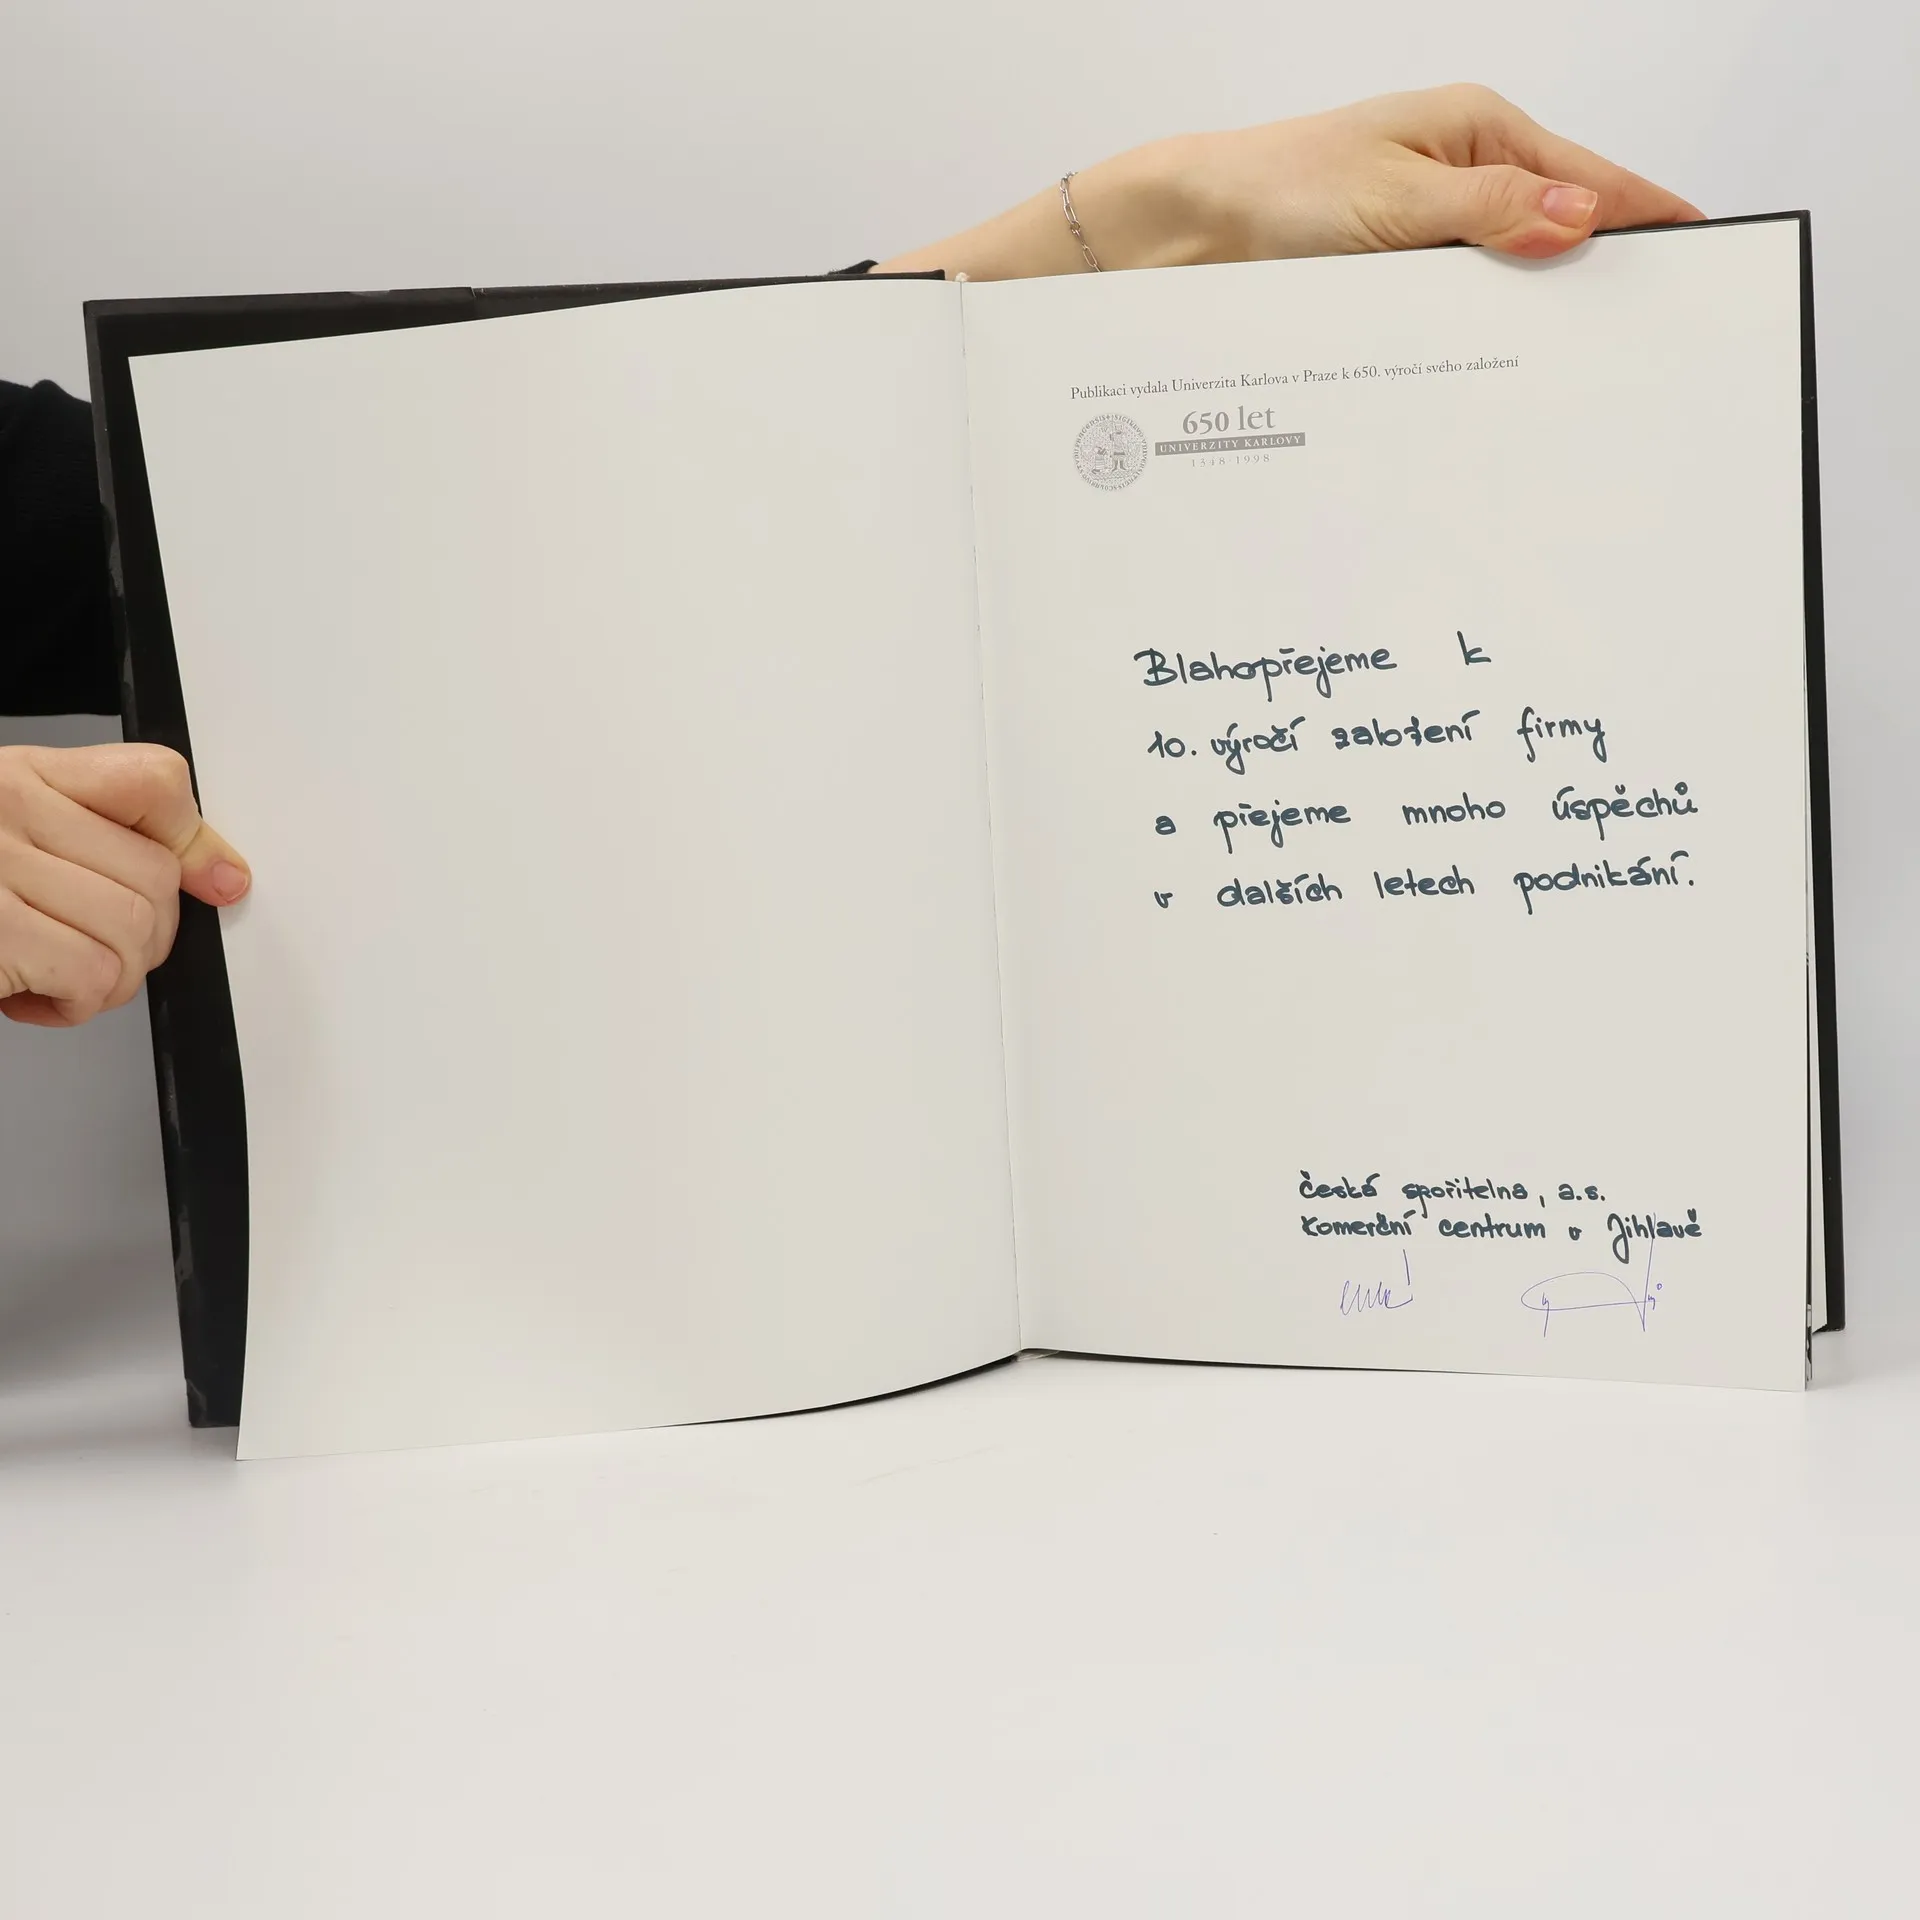 Publikaci vydala Univerzita Karlova v Praze k 650. výročí svého založení
650 let
UNIVERZITY KARLOVY
1348-1998
Blahopřejeme k
10. výročí založení firmy
a přejeme mnoho úspěchů
v dalších letech podnikání.
Česká spořitelna, a.s.
Komerční centrum v Jihlavě